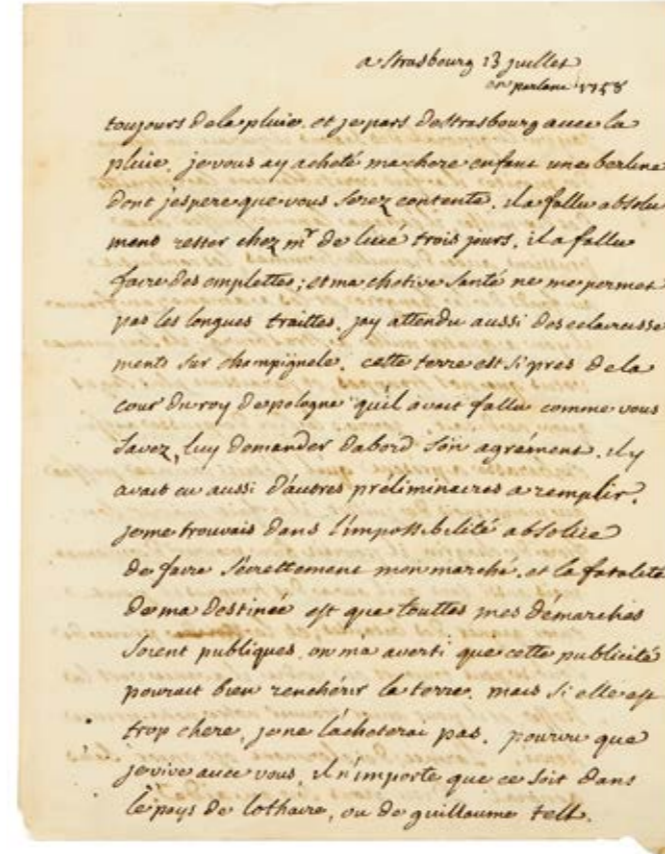 a strasbourg 13 juillet
en partant 1758
toujours de la pluie. et je pars de strasbourg avec la
pluie. je vous ay acheté ma chere enfant une berline
dont jespere que vous serez contente. il a fallu absolu
ment rester chez mr de lucé trois jours. il a fallu
faire des emplettes; et ma chetive santé ne me permet
pas les longues traittes. jay attendu aussi des eclaircisse
ments sur champignele. cette terre est si pres de la
cour du roy de pologne qu'il avait fallu comme vous
savez, luy demander dabord son agrément. il y
avait eu aussi d'autres préliminaires a remplir.
je me trouvais dans l'impossibilité absolue
de faire secrettement mon marché. et la fatalité
de ma destinée est que touttes mes démarches
soient publiques. on m'a averti que cette publicité
pourait bien renchérir la terre. mais si elle est
trop chere, je ne l'acheterai pas. pourvu que
je vive avec vous, il n'importe que ce soit dans
le pays de lothaire, ou de guillaume tell.